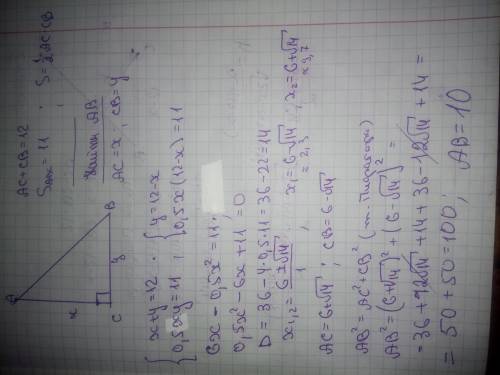 A
x
y
C
B
AC+CB=12
S△ABC = 11 ; S=½AC·CB
Найти AB
AC=x ; CB=y
{x+y=12 ; {y=12-x
{0,5xy=11 ; {0,5x(12-x)=11
6x-0,5x²=11;
0,5x²-6x+11=0
D=36-4·0,5·11=36-22=14
x₁,₂=6±√14/1 ; x₁=6-√14≈2,3 ; x₂=6+√14≈9,7
AC=6+√14 ; CB=6-√14
AB²=AC²·CB² (т. Пифагора)
AB²=(6+√14)²+(6-√14)²=
=36+12√14+14+36-12√14+14=
=50+50=100; AB=10